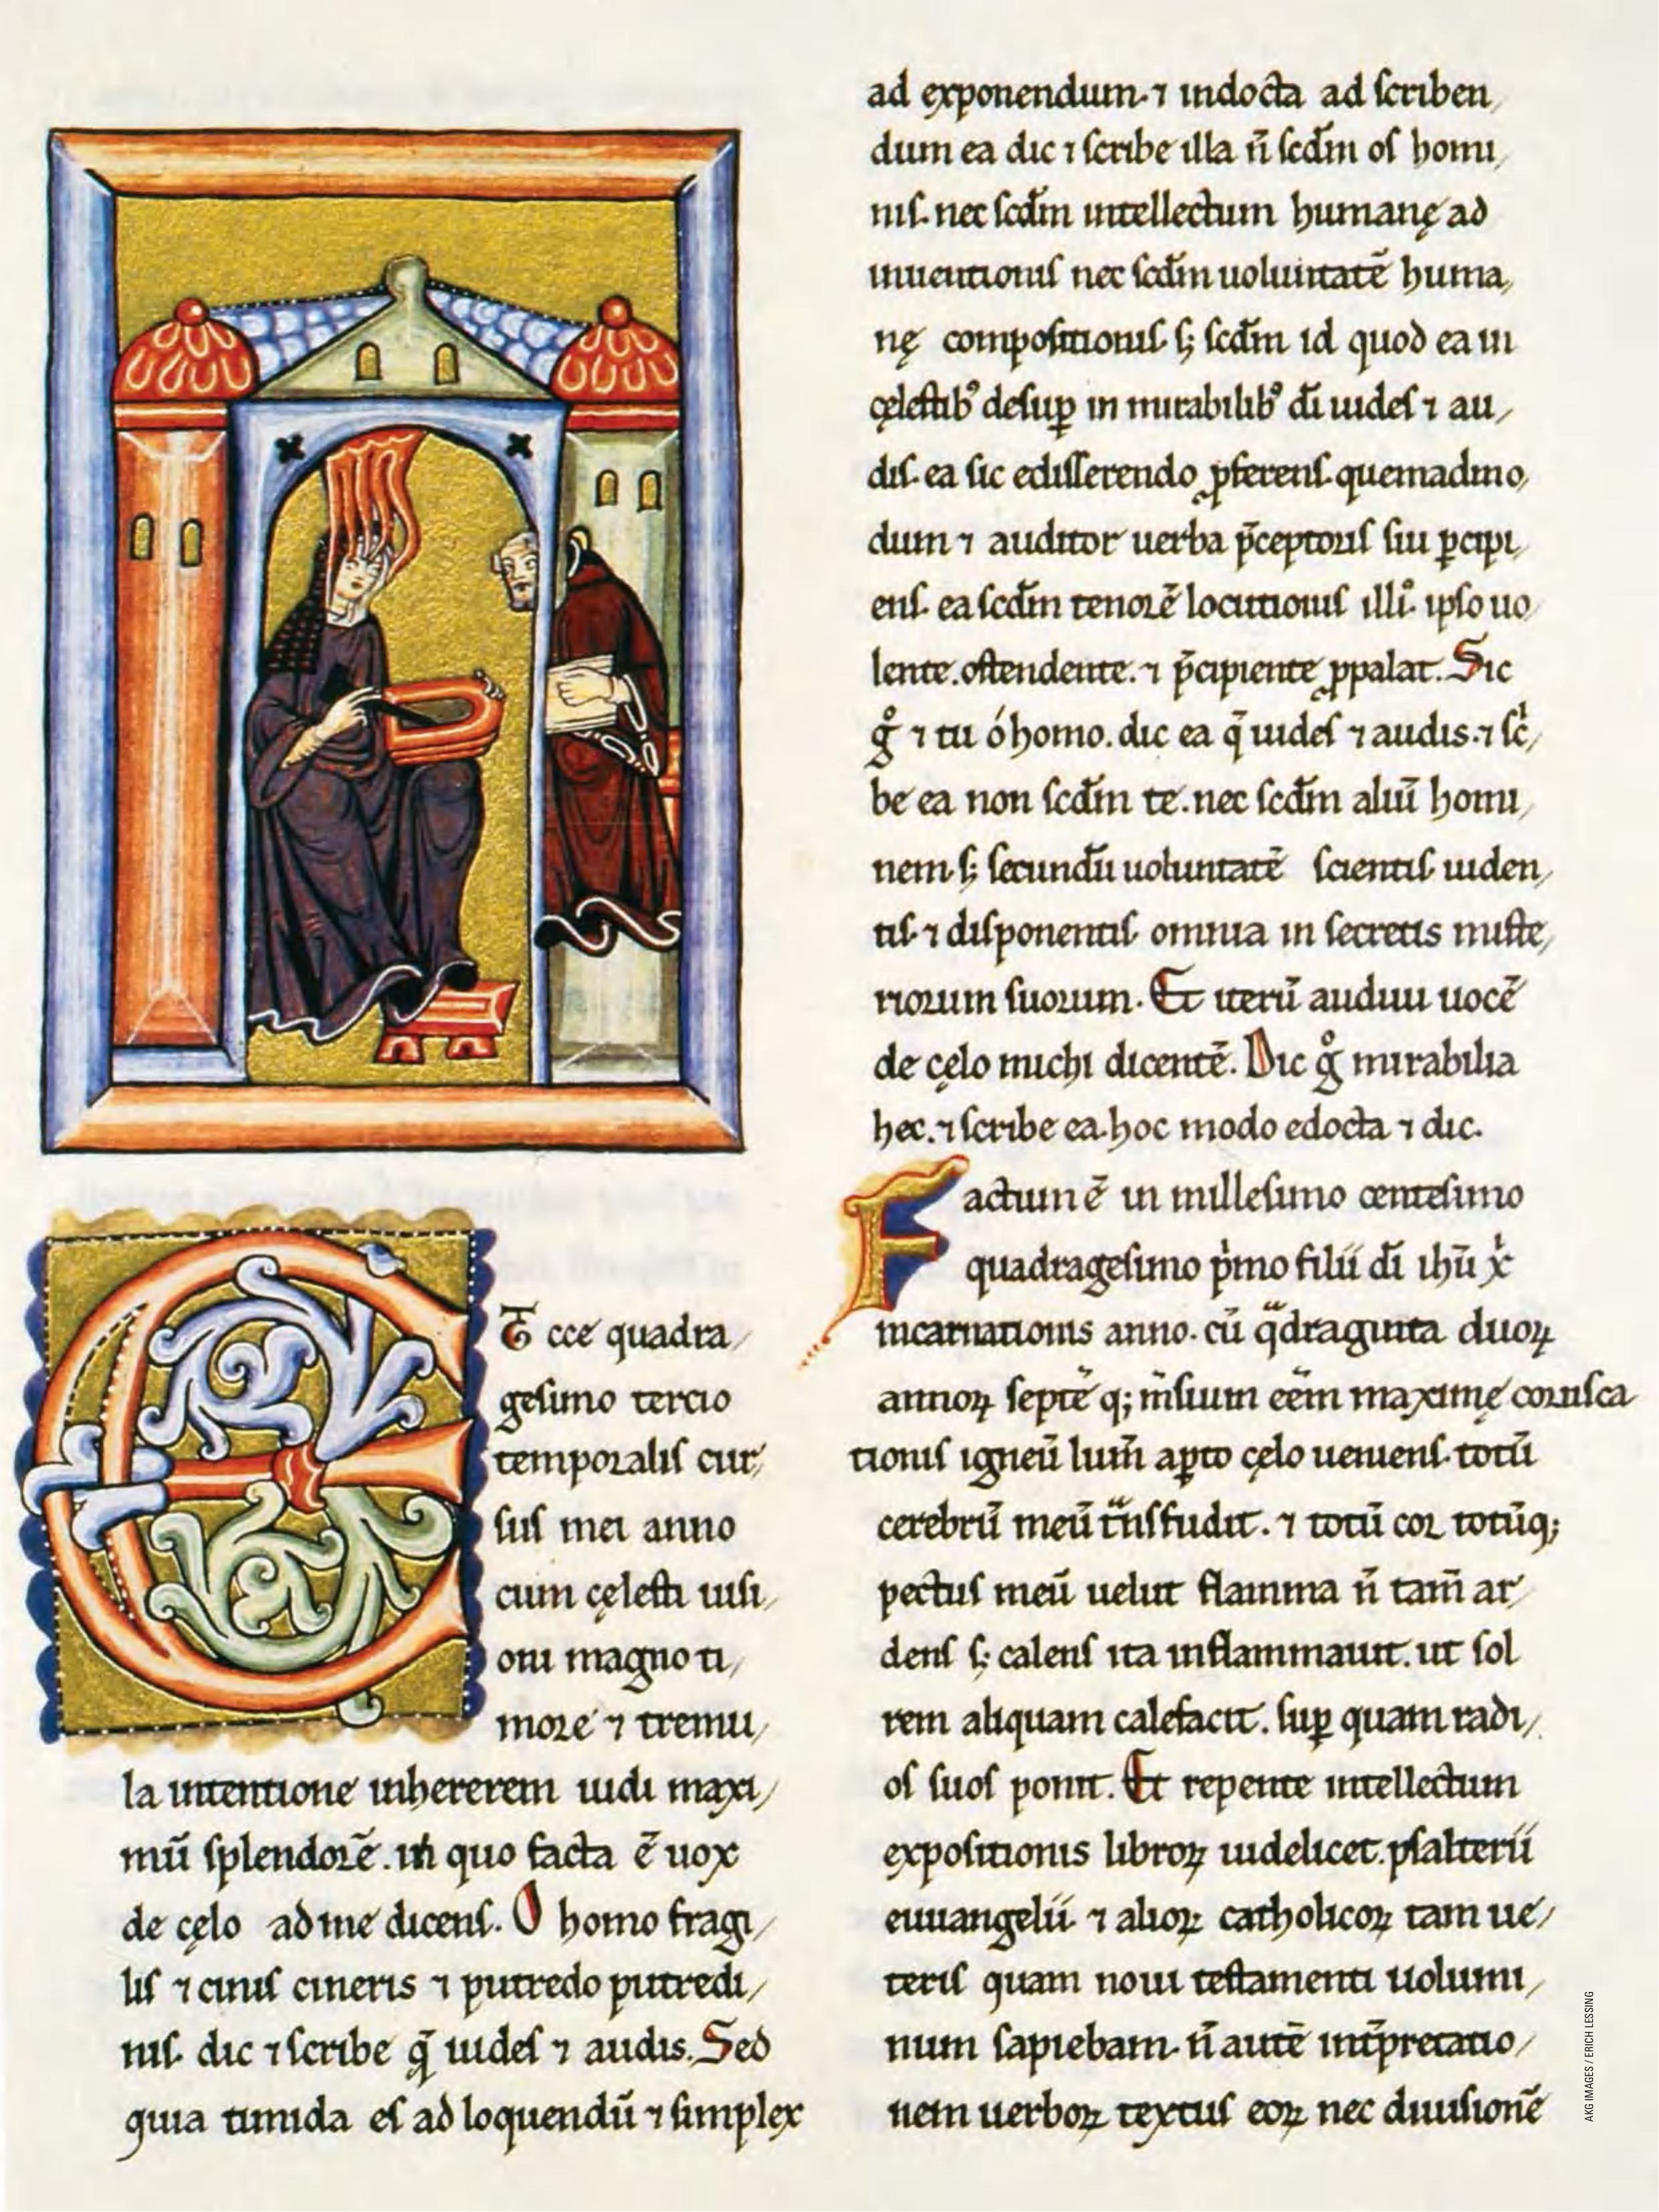 Ecce quadra/
gesimo tercio
temporalis cur/
sus mei anno
cum cęlesti uisi/
oni magno ti/
more ⁊ tremu/
la intentione inhererem uidi maxi/
mū splendorē. in quo facta ē uox
de cęlo ad me dicens. O homo fragi/
lis ⁊ cinis cineris ⁊ putredo putredi/
nis. dic ⁊ scribe q̄ uides ⁊ audis. Sed
quia timida es ad loquendū ⁊ simplex
ad exponendum. ⁊ indocta ad scriben/
dum ea dic ⁊ scribe illa n̄ scdm̄ os homi/
nis. nec scdm̄ intellectum humanę ad
inuentionis nec scdm̄ uoluntatē huma/
nę compositionis s; scdm̄ id quod ea in
cęlestibꝰ desuꝑ in mirabilibꝰ dī uides ⁊ au/
dis. ea sic edisserendo ꝓferens. quemadmo/
dum ⁊ auditor uerba p̄ceptoris sui ꝑcipi/
ens. ea scdm̄ tenorē locutionis illiꝰ. ipso uo/
lente. ostendente. ⁊ p̄cipiente ꝓpalat. Sic
gͦ ⁊ tu ó homo. dic ea q̄ uides ⁊ audis. ⁊ scⁱ/
be ea non scdm̄ te. nec scdm̄ aliū homi/
nem. s; secundū uoluntatē scientis uiden/
tis. ⁊ disponentis omnia in secretis miste/
riorum suorum. Et iterū audiui uocē
de cęlo michi dicentē. Dic gͦ mirabilia
hec. ⁊ scribe ea. hoc modo edocta ⁊ dic.
Factum ē in millesimo centesimo
quadragesimo pⁱmo filii dī ihū xⁱ
incarnationis anno. cū qᵃdraginta duoꝝ
annoꝝ septē q; m̄sium eēm maximę corusca
tionis igneū lum̄ aꝑto cęlo ueniens. totū
cerebrū meū tᵃnsfudit. ⁊ totū cor totūq;
pectus meū uelut flamma n̄ tam̄ ar/
dens s; calens ita inflammauit. ut sol
rem aliquam calefacit. suꝑ quam radi/
os suos ponit. Et repente intellectum
expositionis libroꝝ uidelicet. psalterii
euuangelii ⁊ alioꝝ catholicoꝝ tam ue/
teris quam noui testamenti uolumi/
num sapiebam. n̄ autē int̄pretatio/
nem uerboꝝ textus eoꝝ nec diuisionē
AKG IMAGES / ERICH LESSING